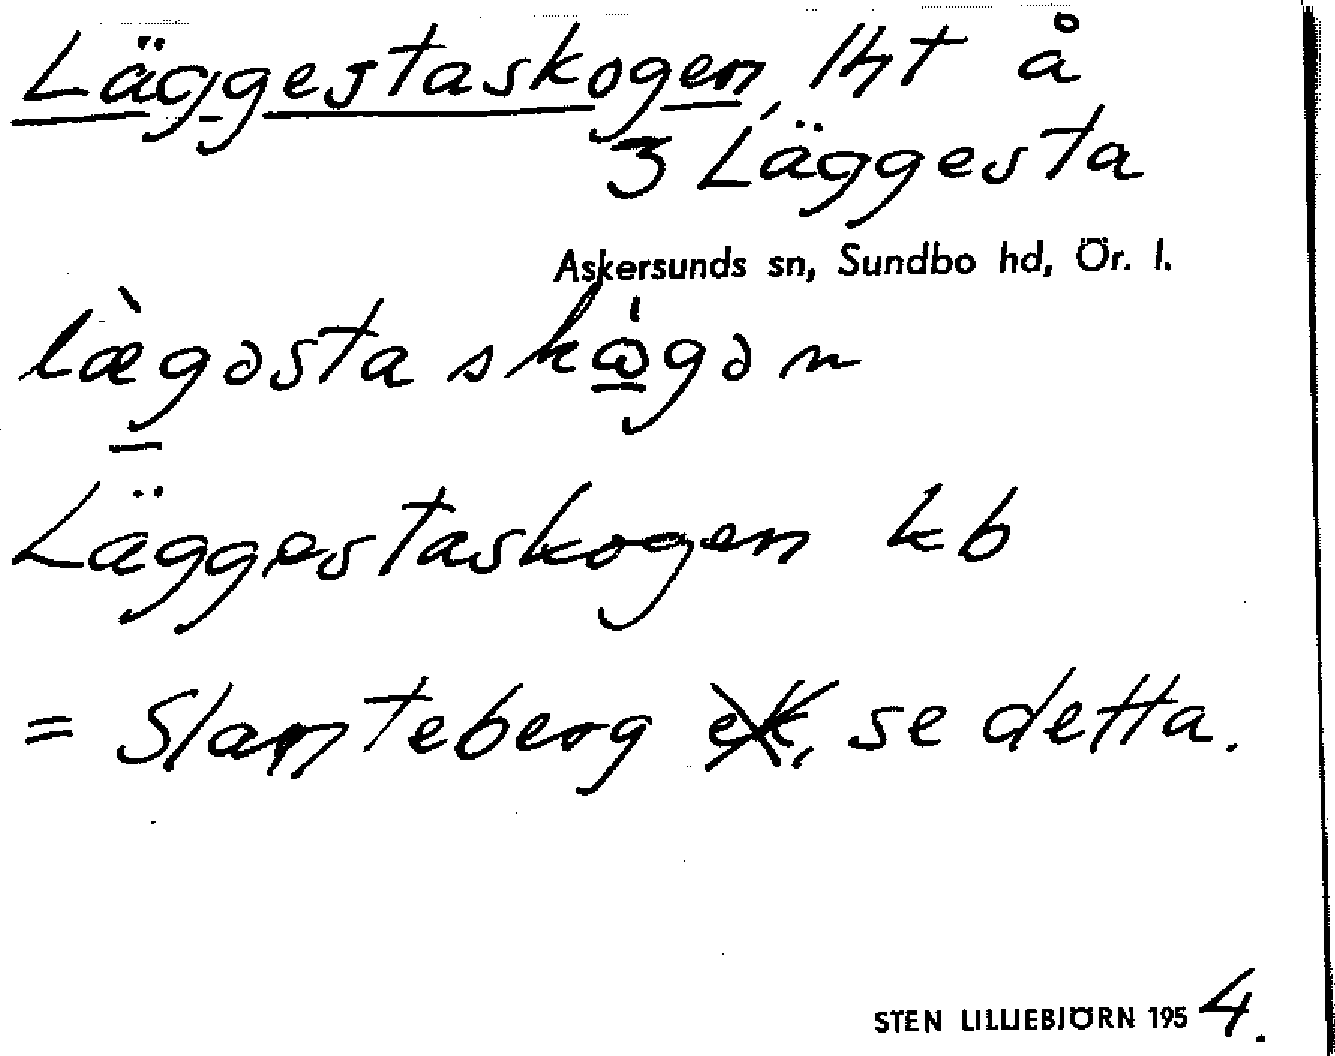 Läggestaskogen, lht å
3 Läggesta
Askersunds sn, Sundbo hd, Ör. l.
læ̀gəsta skɷ́gən
Läggestaskogen kb
= Slamteberg ek, se detta.
STEN LILLIEBJÖRN 1954.